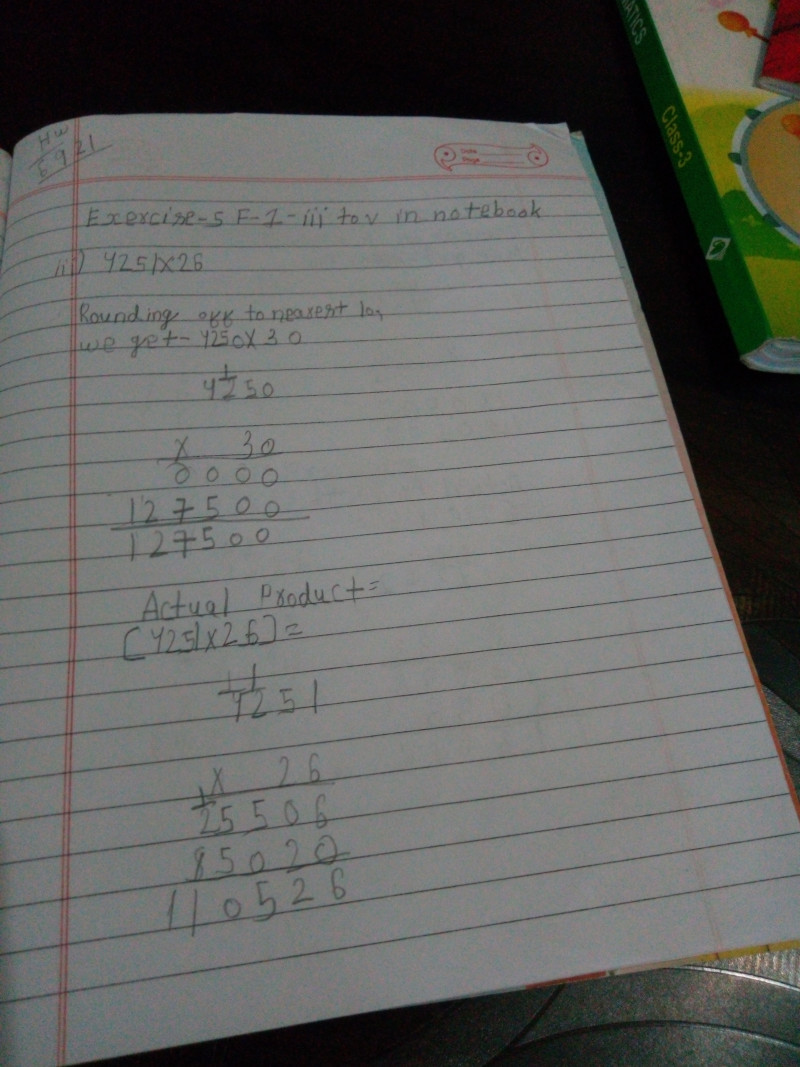 HW
6 9 21
Date
Page
MATICS
Class-3
Exercise-5 F-1-iii to v in notebook
iii) 4251X26
Rounding off to nearest 10,
we get- 4250X30
1
4250
X 30
0000
127500
127500
Actual Product=
[4251X26]=
1 1
4251
X 26
1
25506
85020
110526